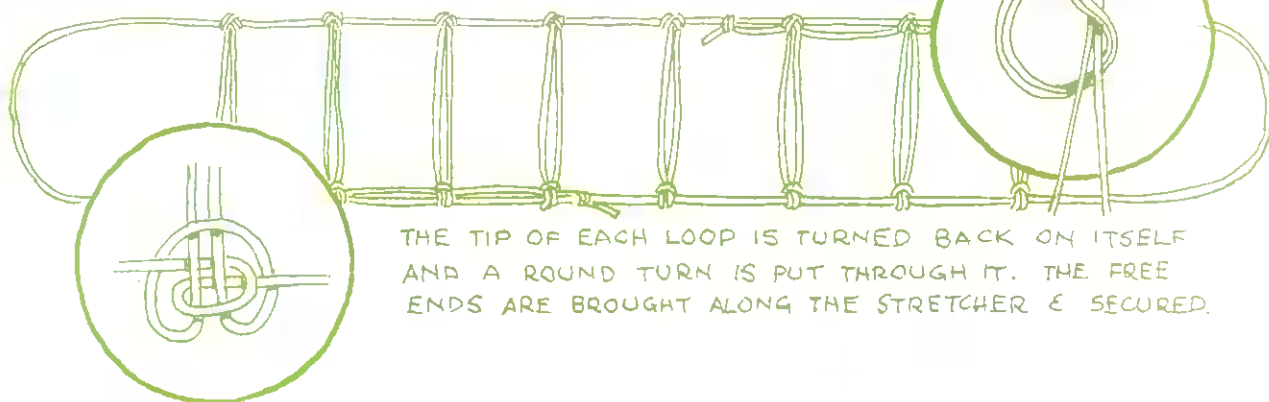 THE TIP OF EACH LOOP IS TURNED BACK ON ITSELF
AND A ROUND TURN IS PUT THROUGH IT. THE FREE
ENDS ARE BROUGHT ALONG THE STRETCHER & SECURED.